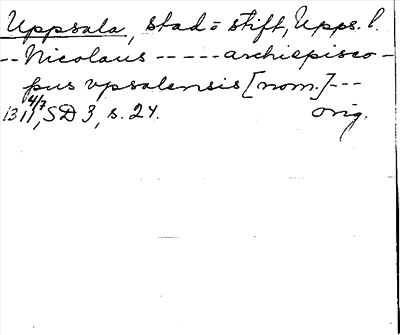 Uppsala, stad = stift, Upps. l.
-- Nicolaus ----- archiepisco-
pus vpsalensis [nom.] ---
1311 4/7, SD 3, s. 24. orig.